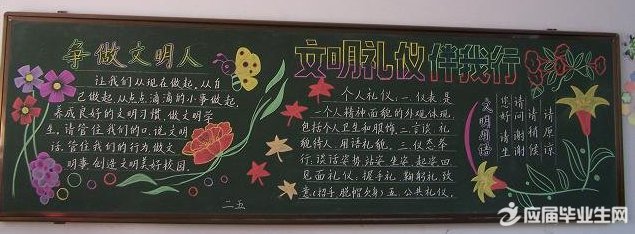 争做文明人
让我们从现在做起,从自
己做起,从点点滴滴的小事做起,
养成良好的文明习惯,做文明学
生,请管住我们的口,说文明
话,管住我们的行为,做文
明事,创造文明美好校园.
二五
文明礼仪伴我行
个人礼仪:一、仪表是
一个人精神面貌的外观体现,
包括个人卫生和服饰,二、言谈,礼
貌待人,用语礼貌,三、仪态举
行,谈话姿势,站姿,坐姿,起姿,四、
见面礼仪:握手礼,鞠躬礼,致
意(招手,脱帽,欠身)五、公共礼仪.
文明用语
请原谅
请稍候
请问 谢谢
您好 请坐
应届毕业生网